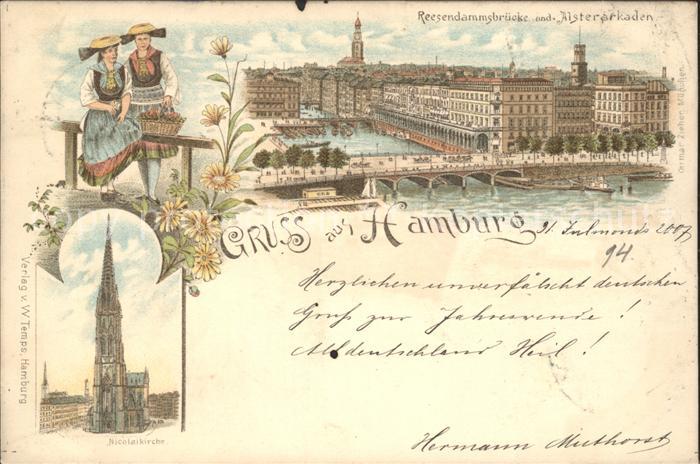 Reesendammsbrücke und Alsterarkaden
Ottmar Zieher, München.
GRUSS aus Hamburg
21. Julmonds 2007
94.
Herzlichen unverfälscht deutschen
Gruß zur Jahreswende!
Alldeutschland Heil!
Hermann
Verlag v. W. Temps, Hamburg
Nicolaikirche.